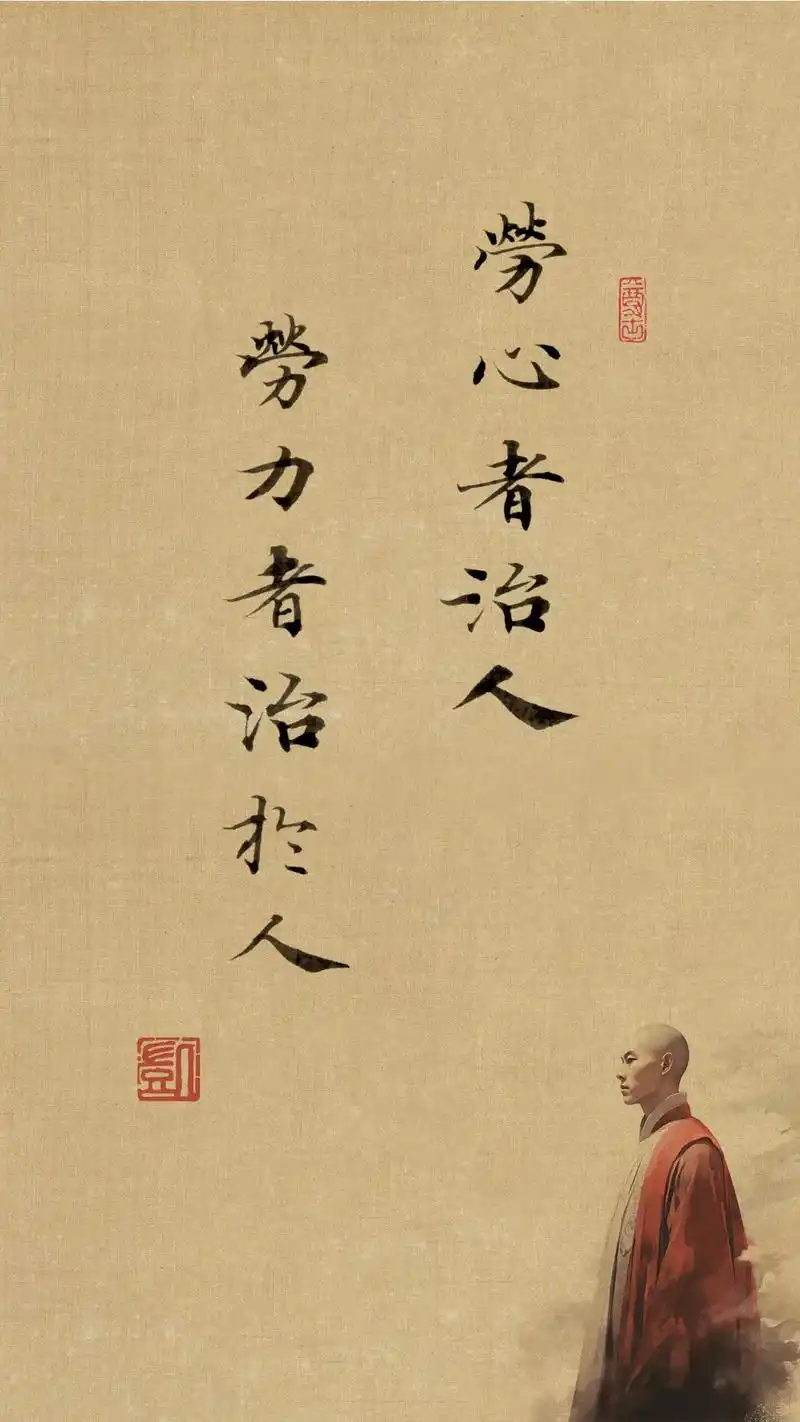 勞心者治人
勞力者治於人